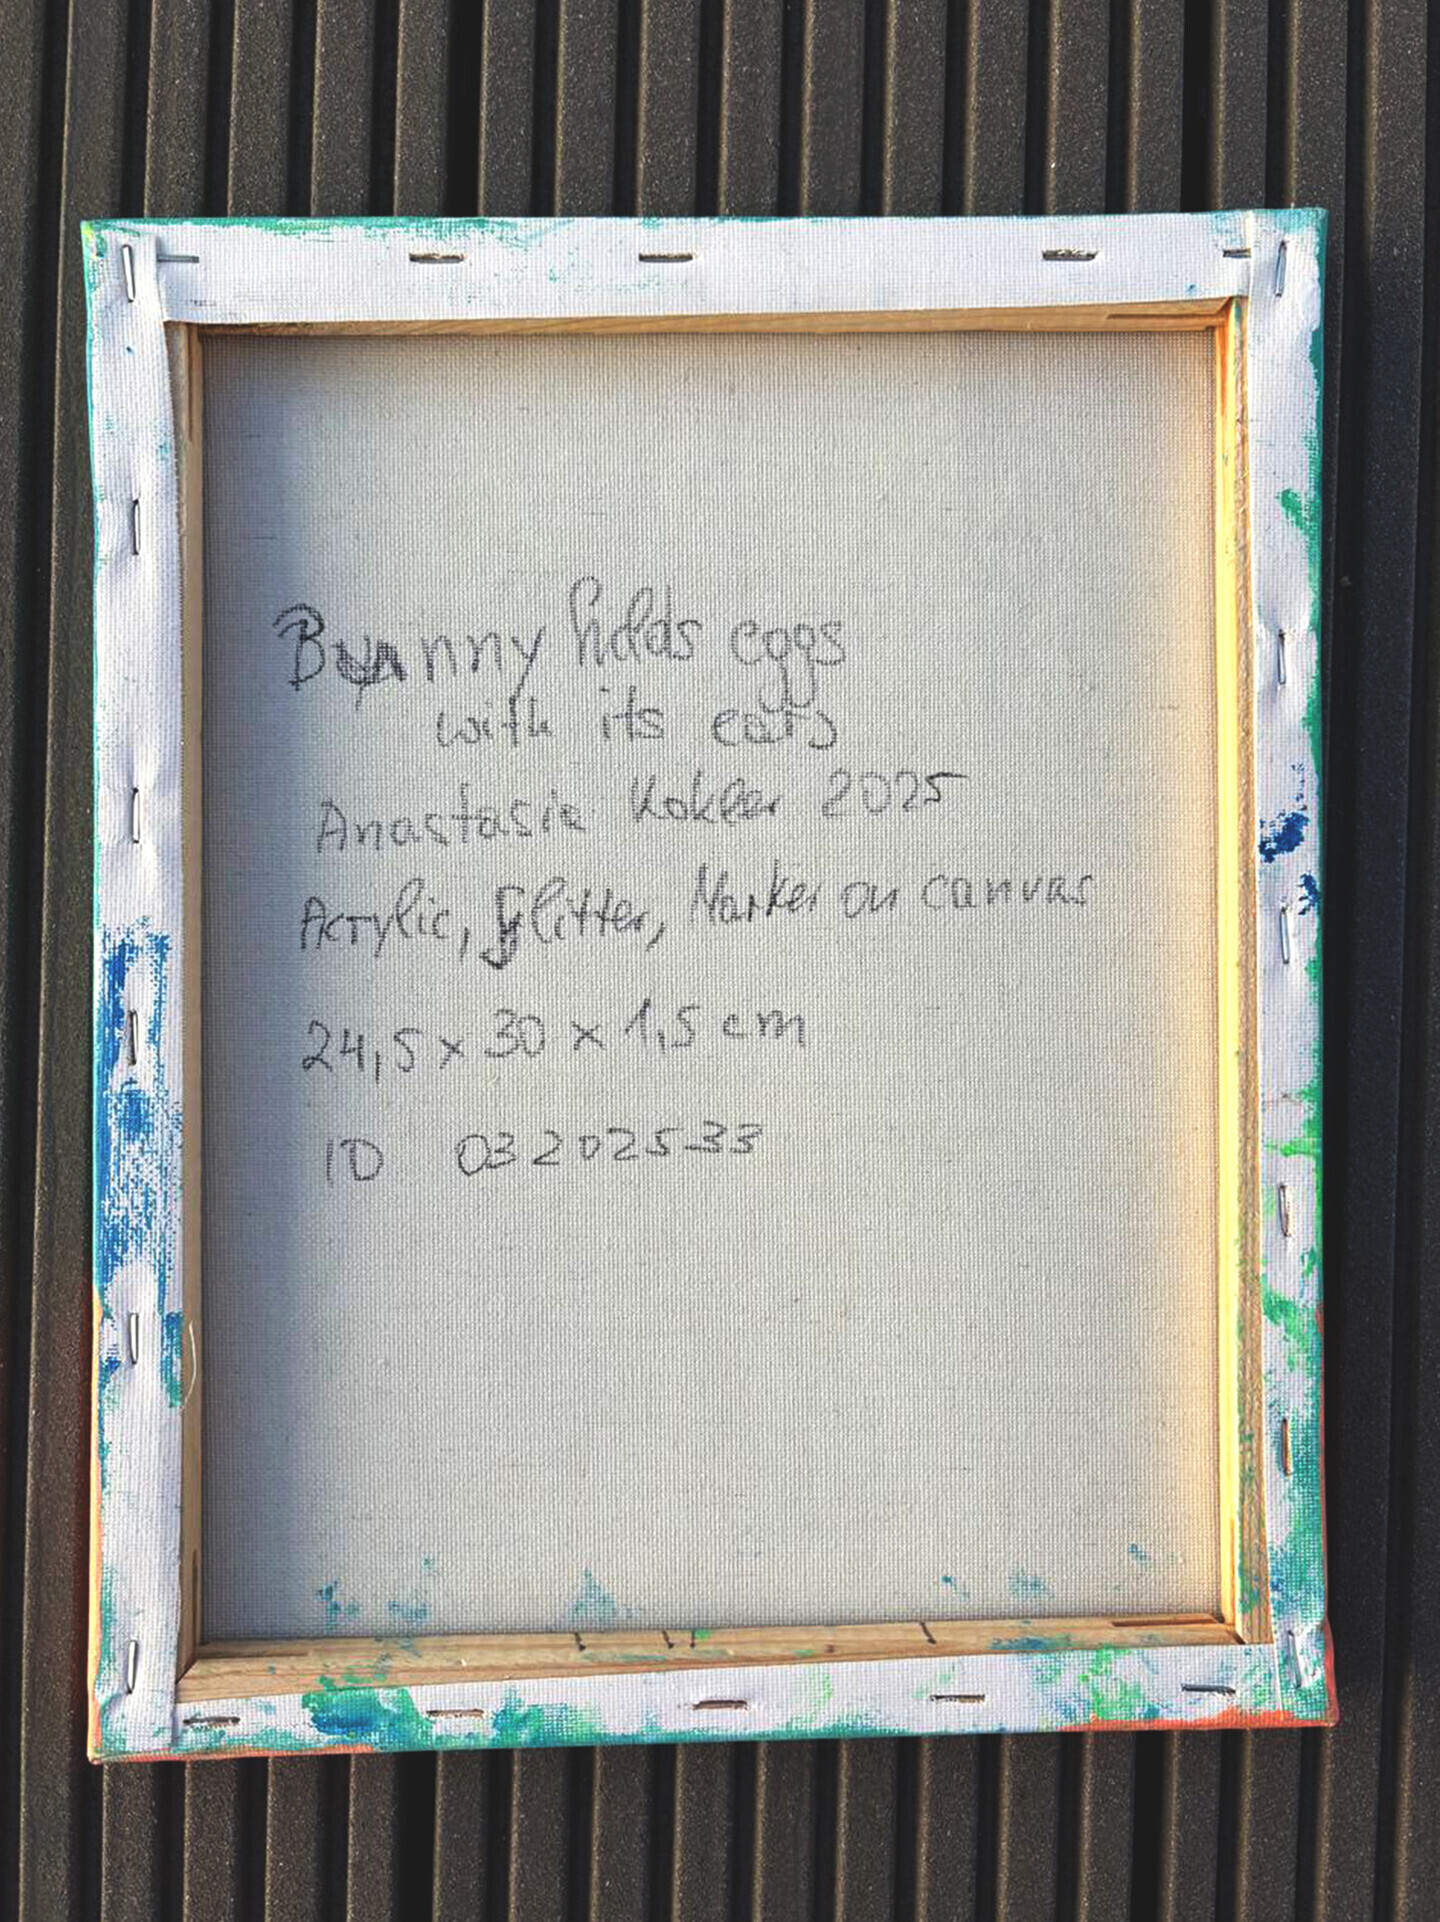 Bunny holds eggs
with its ears
Anastasia Kokler 2025
Acrylic, Glitter, Marker on canvas
24,5 x 30 x 1,5 cm
ID 0320202533